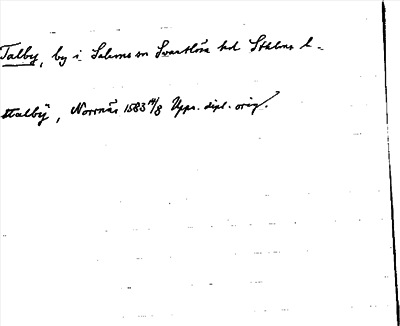 Talby, by i Salems sn Svartlösa hd Sthlms l.
stalbÿ, Norrnäs 1583 14/8 Upps. dipl. orig.